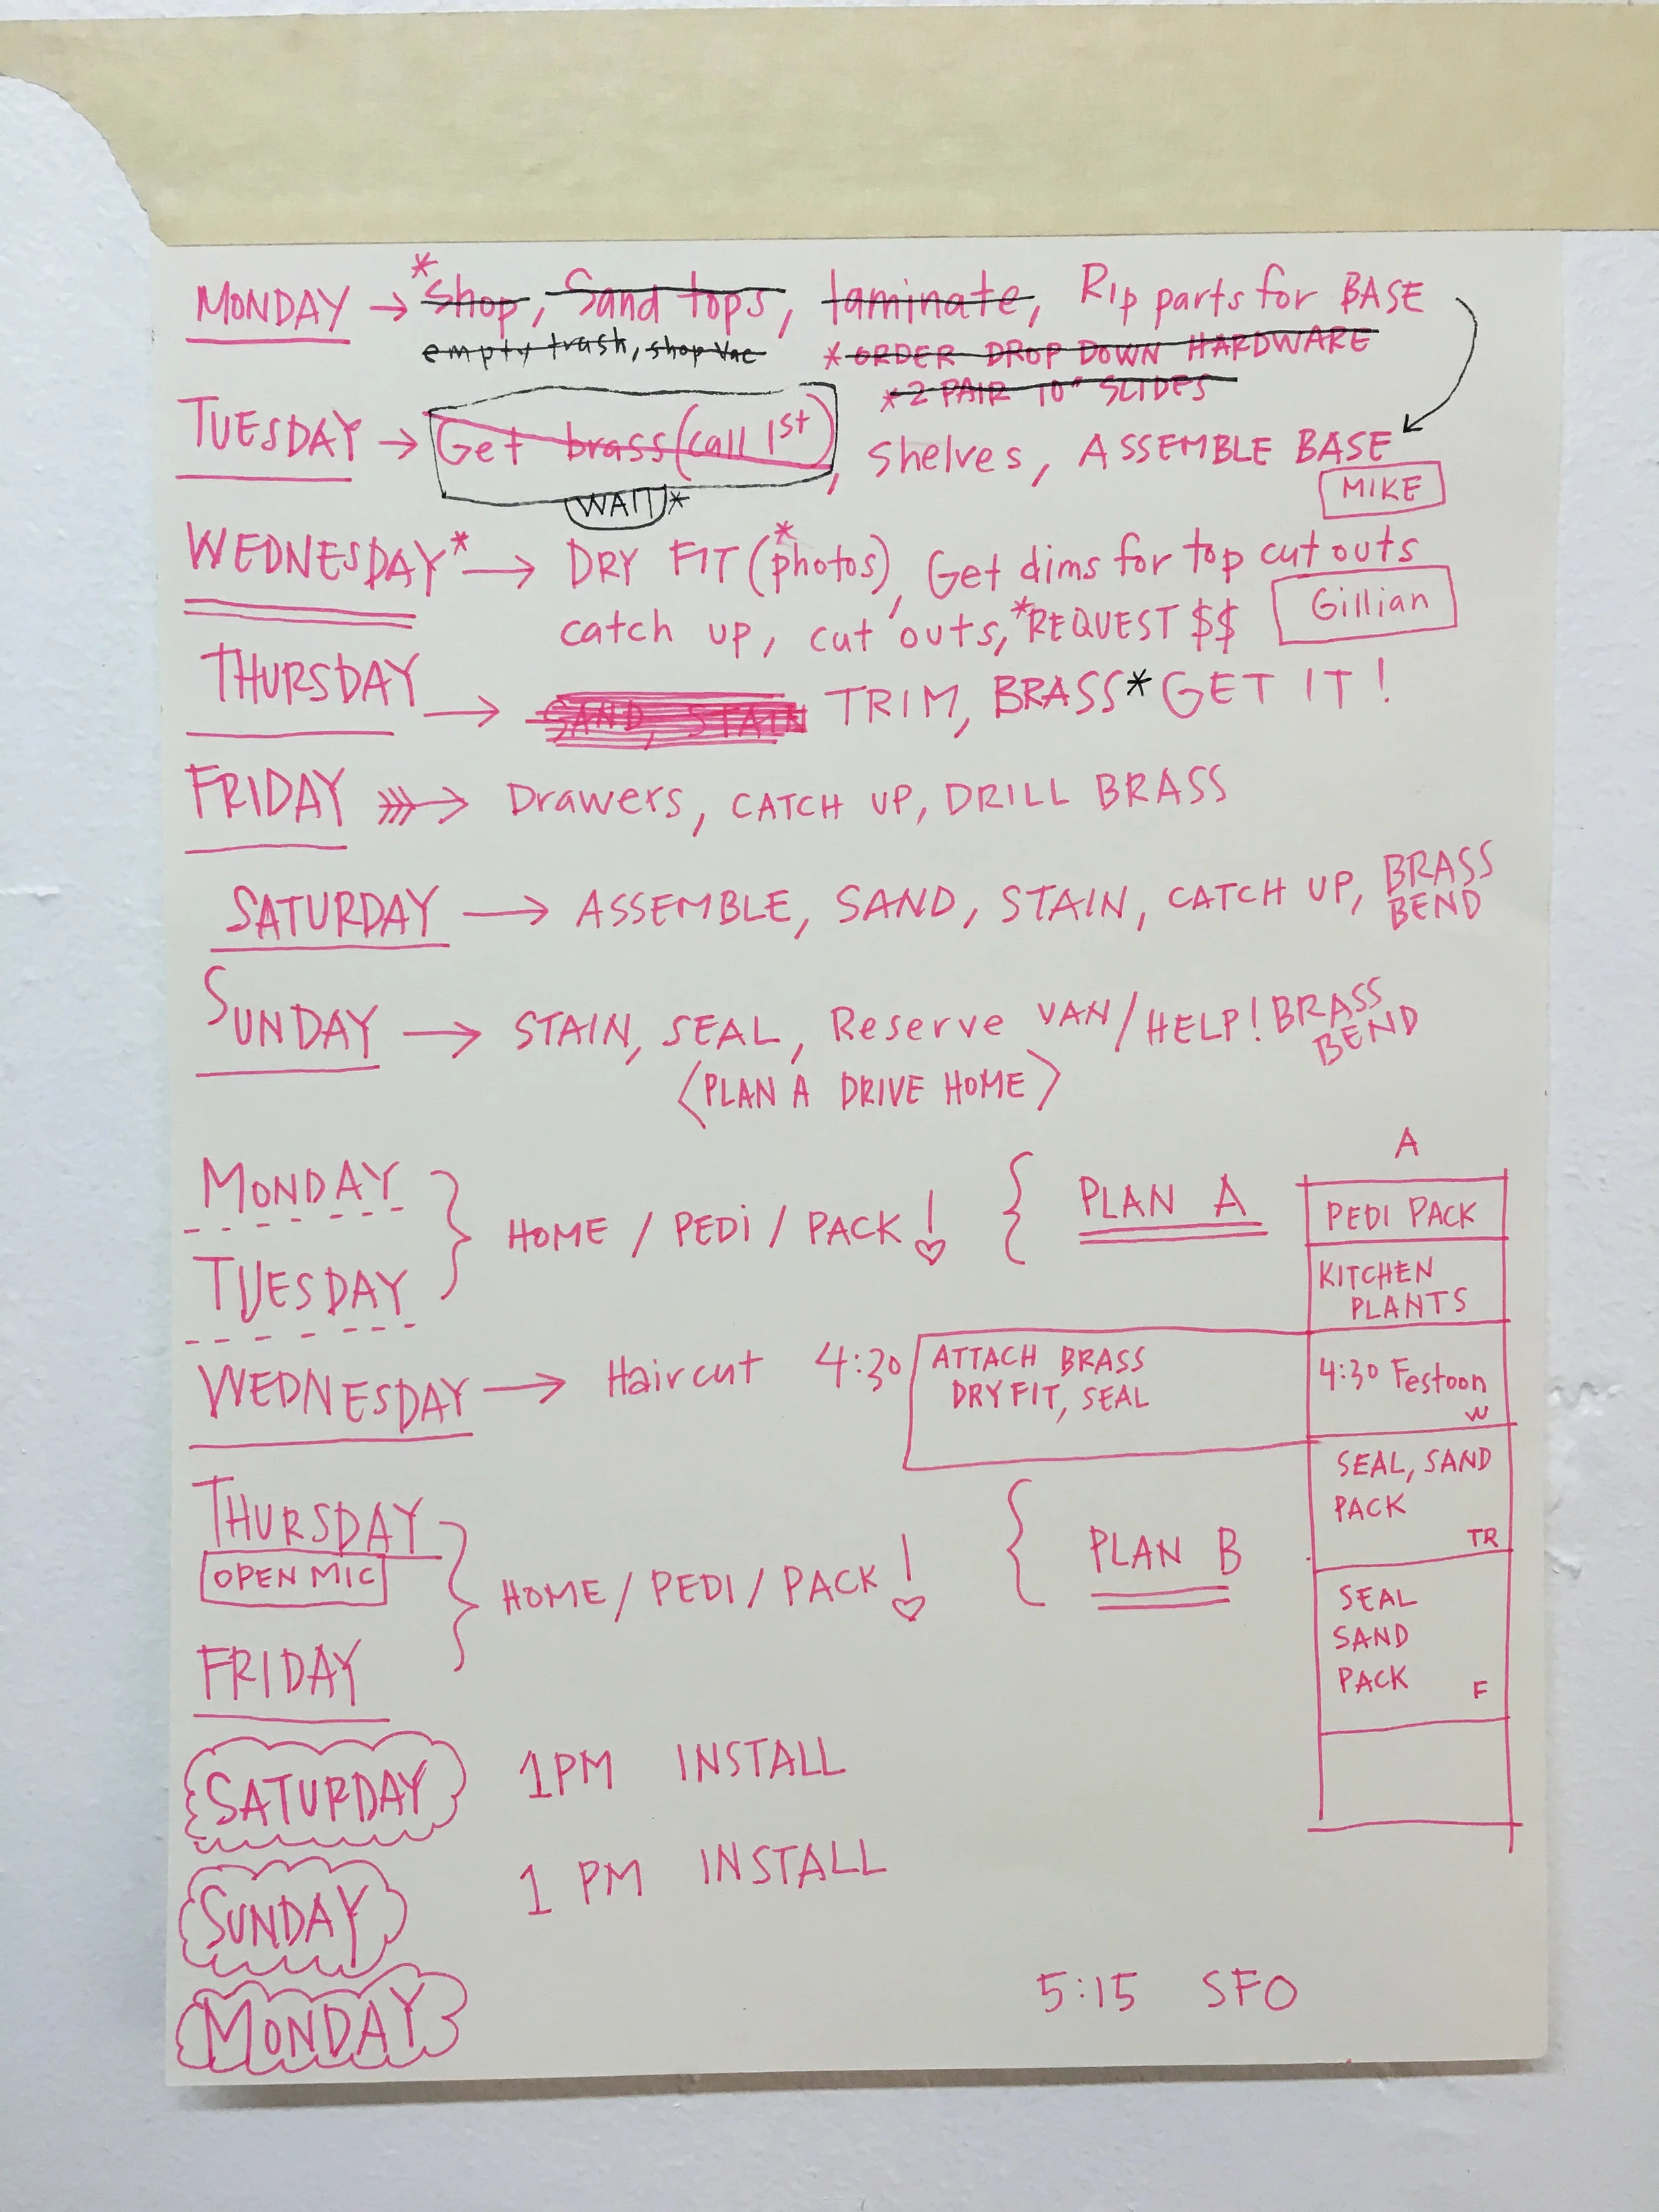 MONDAY → *Shop, Sand tops, laminate, Rip parts for BASE
empty trash, shop vac *ORDER DROP DOWN HARDWARE
*2 PAIR 10" SLIDES
TUESDAY → Get brass (call 1st), Shelves, ASSEMBLE BASE
WAIT* MIKE
WEDNESDAY* → DRY FIT (*photos), Get dims for top cut outs
catch up, cut outs, *REQUEST $$ Gillian
THURSDAY → SAND, STAIN TRIM, BRASS* GET IT!
FRIDAY → Drawers, CATCH UP, DRILL BRASS
SATURDAY → ASSEMBLE, SAND, STAIN, CATCH UP, BRASS
BEND
SUNDAY → STAIN, SEAL, Reserve VAN/HELP! BRASS
BEND
〈PLAN A DRIVE HOME〉
A
MONDAY
HOME / PEDI / PACK! { PLAN A
TUESDAY
PEDI PACK
KITCHEN
PLANTS
WEDNESDAY → Haircut 4:30
ATTACH BRASS
DRY FIT, SEAL
4:30 Festoon
W
SEAL, SAND
PACK
TR
THURSDAY
OPEN MIC
HOME / PEDI / PACK! { PLAN B
FRIDAY
SEAL
SAND
PACK
F
SATURDAY 1PM INSTALL
SUNDAY 1 PM INSTALL
MONDAY 5:15 SFO